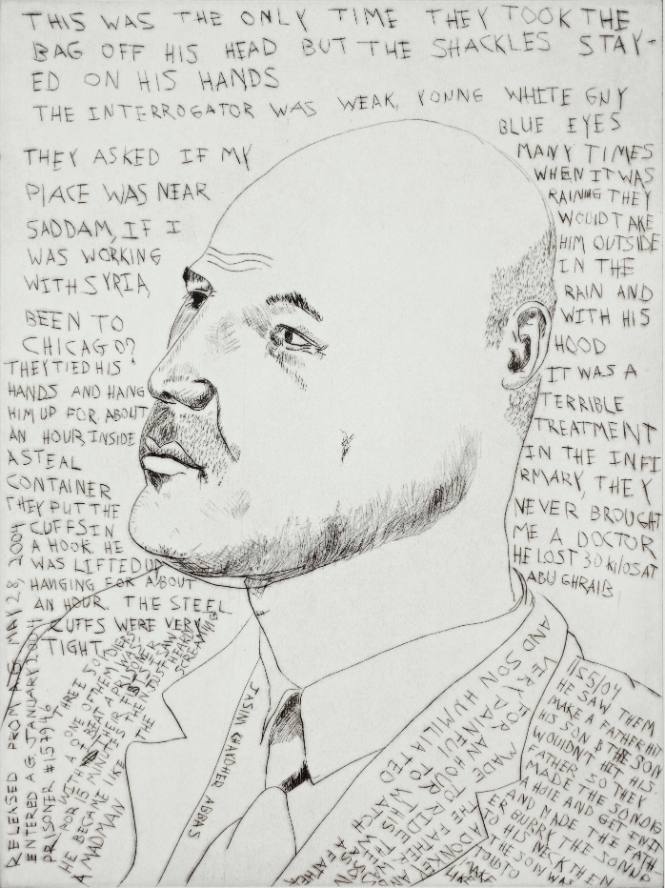 THIS WAS THE ONLY TIME THEY TOOK THE
BAG OFF HIS HEAD BUT THE SHACKLES STAY-
ED ON HIS HANDS
THE INTERROGATOR WAS WEAK, YONNG WHITE GNY
BLUE EYES
THEY ASKED IF MY
PLACE WAS NEAR
SADDAM, IF I
WAS WORKING
WITH SYRIA,
BEEN TO
CHICAGO?
THEY TIED HIS
HANDS AND HANG
HIM UP FOR ABOUT
AN HOUR INSIDE
A STEAL
CONTAINER
THEY PUT THE
CUFFS IN
A HOOK HE
WAS LIFTED UP
HANGING FOR ABOUT
AN HOUR. THE STEEL
CUFFS WERE VERY
TIGHT.
MANY TIMES
WHEN IT WAS
RAINING THEY
WOULD TAKE
HIM OUTSIDE
IN THE
RAIN AND
WITH HIS
HOOD
IT WAS A
TERRIBLE
TREATMENT
IN THE INFI
RMARY, THEY
NEVER BROUGHT
ME A DOCTOR
HE LOST 30 KILOS AT
ABU GHRAIB
RELEASED FROM A.G. MAY 28, 2004
ENTERED A.G. JANUARY 2004
PRISONER #157946
HE BECAME LIKE
A MADMAN
SCREAMING
JASIM CHAYDHER ABBAS
AND SON HUMILIATED
VERY PAINFUL TO WATCH A FATHER
FOR AN HOUR THIS WAS
MADE TO RIDE
THE FATHER AND
A DONKEY
HE SAW THEM
MAKE A FATHER HIT
HIS SON & THE SON
WOULDN'T HIT HIS
FATHER SO THEY
MADE THE SON DIG
A HOLE AND GET IN IT
AND MADE THE FATH-
ER BURRY THE SON
TO HIS NECK THEN
THE SON WAS
TOLD TO
MAKE